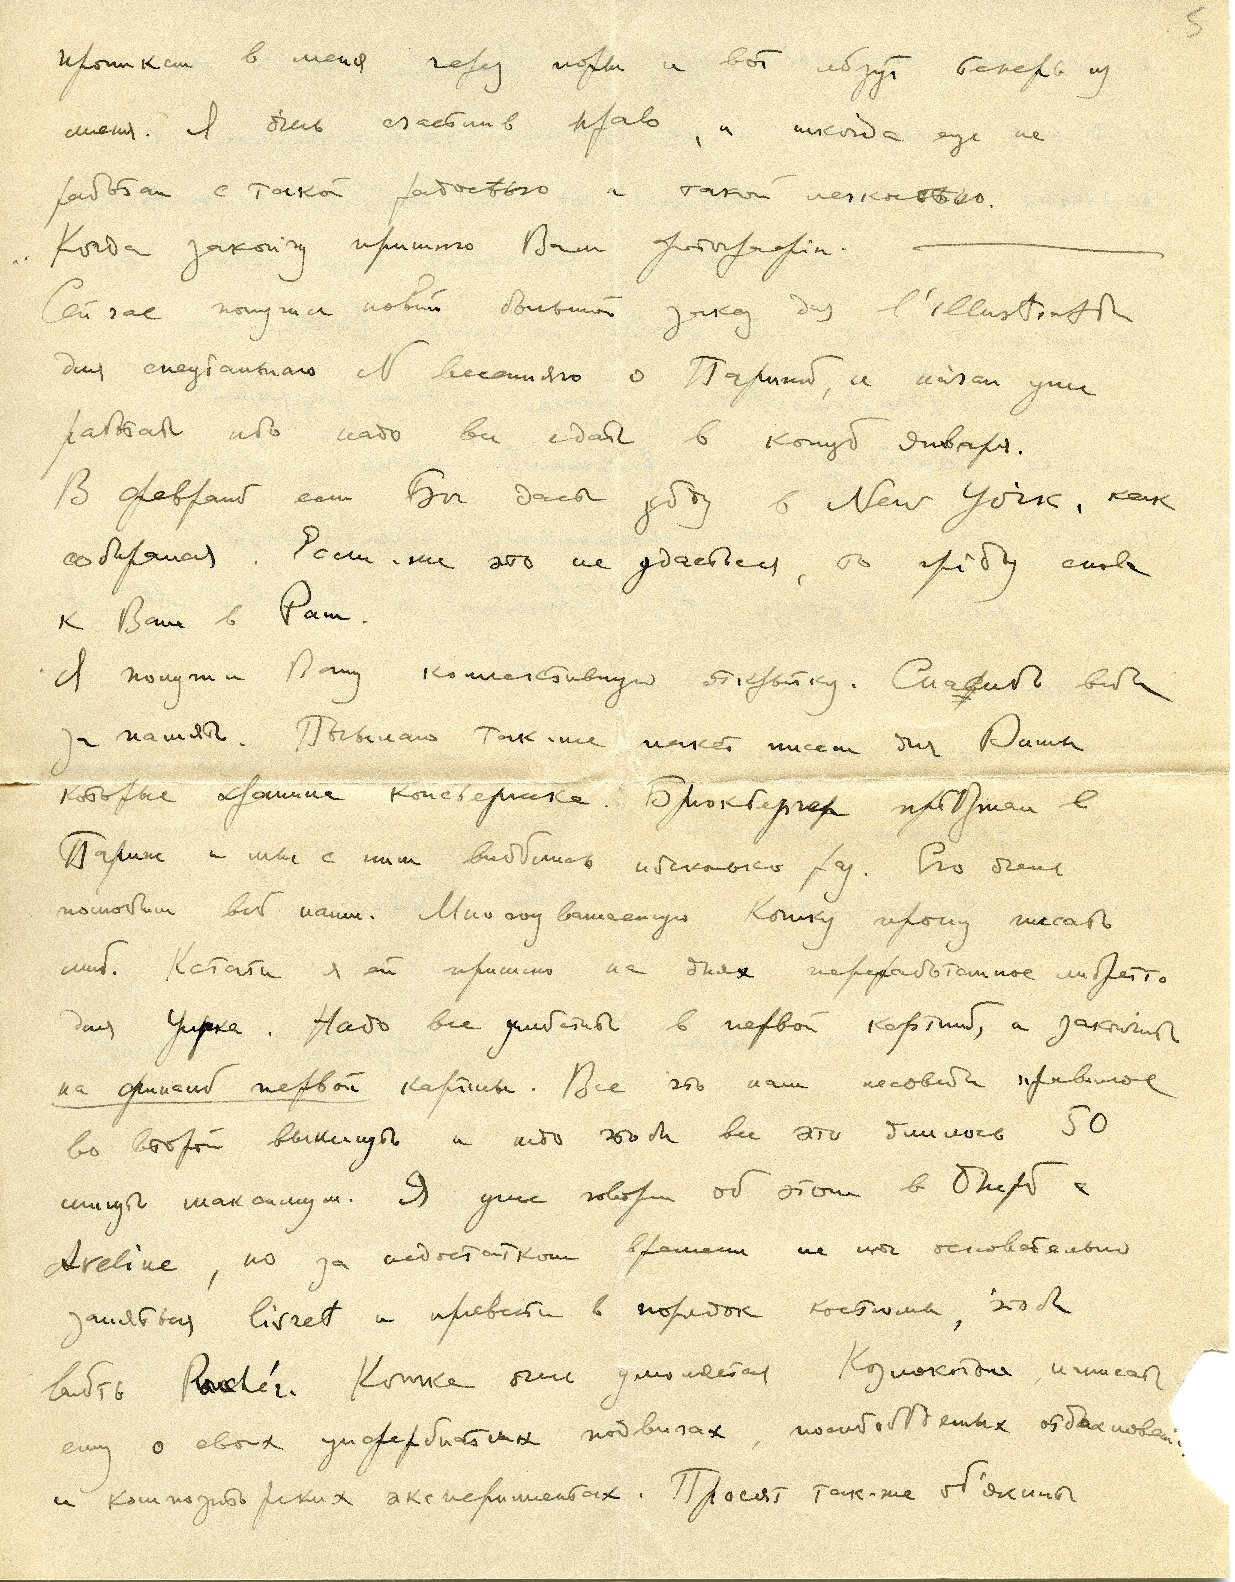 5
проникал в меня через поры и вот лѣзут теперь из
меня. Я очень счастлив право, и никогда еще не
работал с такой радостью и такой легкостью.
Когда закончу пришлю Вам фотографiи.
Сейчас получил новый большой заказ для l'illustration
для спецiальнаго N весенняго о Парижѣ, и начал уже
работать ибо надо все сдать в концѣ января.
В февралѣ если Бог даст уѣду в New York, как
собирался. Если-же это не удасться, то прiѣду снова
к Вам в Рим.
Я получил Вашу коллективную открытку. Спасибо всѣм
за память. Посылаю так-же пакет писем для Димы
которые хранила консьержка. Брюкбергер прiѣзжал в
Париж и мы с ним видѣлись нѣсколько раз. Его очень
полюбили всѣ наши. Многоуважаемую Кошку прошу писать
мнѣ. Кстати я ей пришлю на днях переработанное либретто
для Цирка. Надо все умѣстить в первой картинѣ, и закончить
на финалѣ первой картины. Все что нам несовсѣм нравилось
во второй выкинуть и надо чтоб все это длилось 50
минут максимум. Я уже говорил об этом в Оперѣ с
Aveline, но за недостатком времени не мог основательно
заняться livret и привести в порядок костюмы, чтоб
видѣть Rouché. Кошка очень умоляется написать
ему о своих подвигах,
и композиторских экспериментах. Просят так-же объяснить